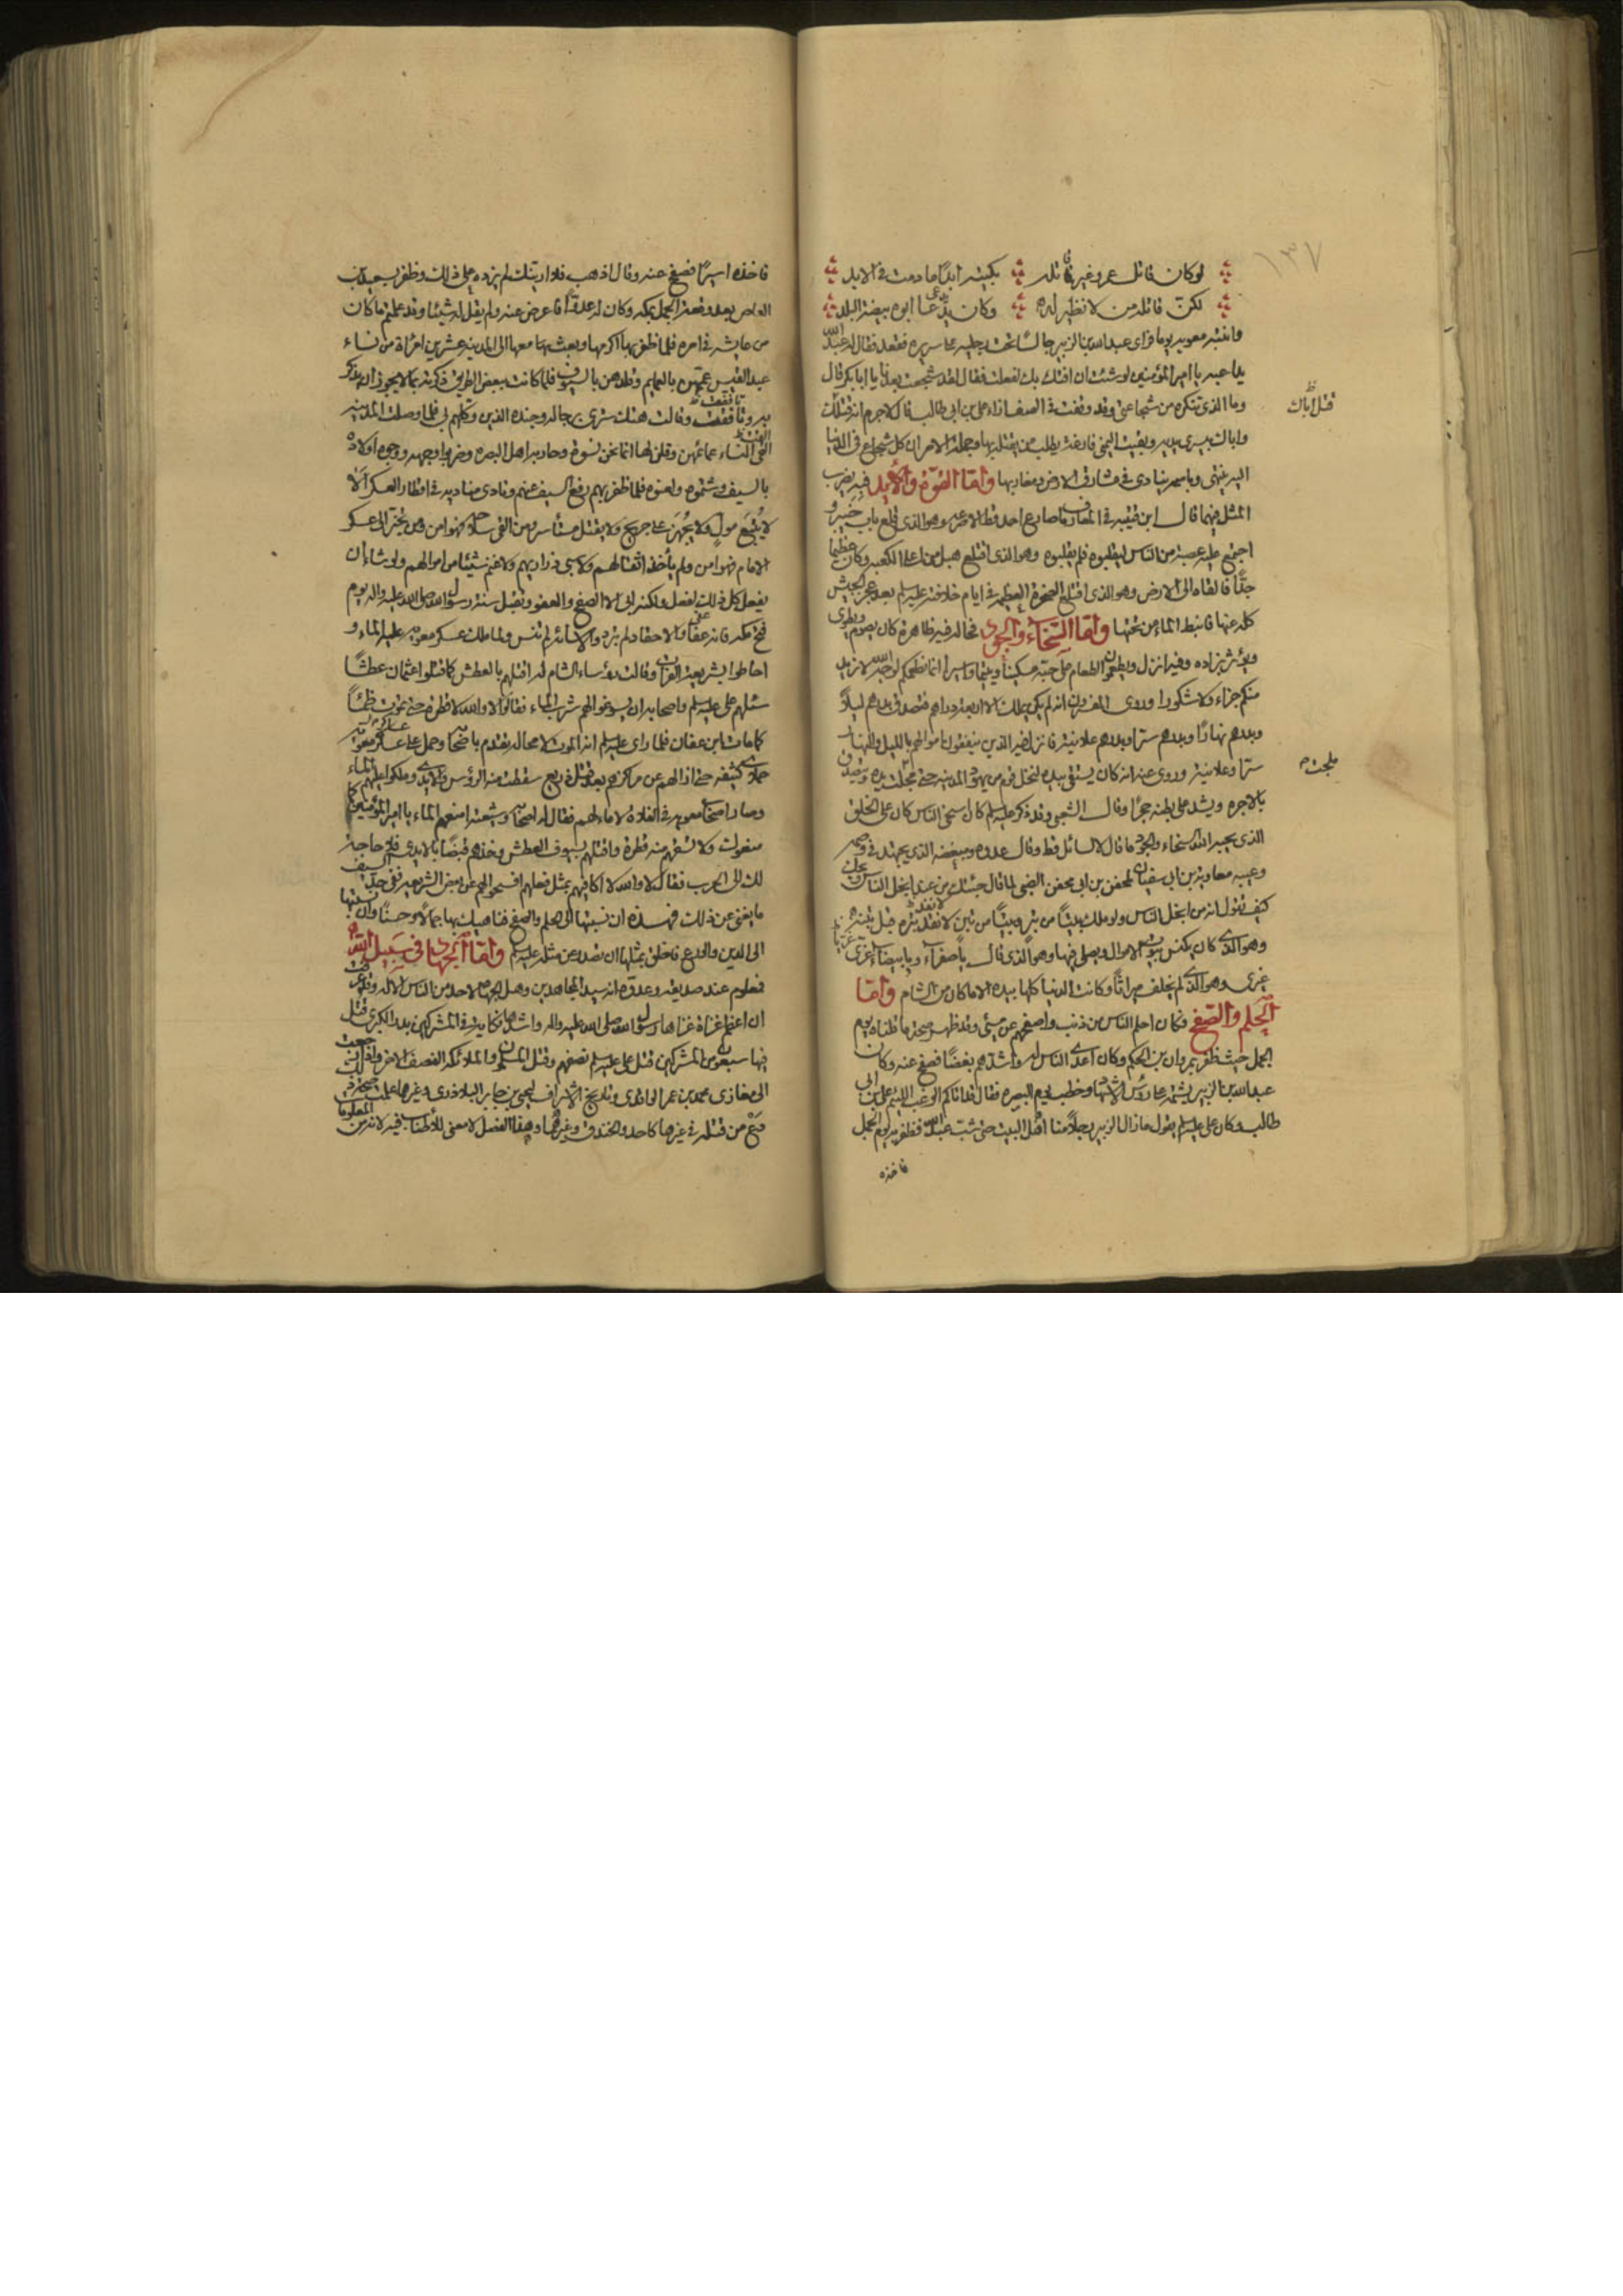 ١٣٧
لو كان قاتل عمرو غير قاتله بكيته ابدًا ما دمت في الابد
لكنّ قاتله من لا نظير له وكان يدعى ابوه بيضة البلد
وانتبه معوية يوما فراى عبدالله بن الزبير جالسًا تحت رجليه على سريره فقعد فقال له عبدالله
يداعبه يا امير المؤمنين لو شئت ان افتك بك لفعلت فقال لقد شجعت بعدنا يا ابا بكر قال
وما الذى تنكره من شجاعتى وقد وقفت في الصف ازاء على بن ابى طالب قال لا جرم انه قتلك
قتل اباك
واباك بيسرى يديه وبقيت اليمنى فارغة يطلب من يقتله بها وجملة الامر ان كل شجاع في الدنيا
اليه ينتهى وباسمه ينادى في مشارق الارض ومغاربها وامّا القوّة والأيد فبه يضرب
المثل فيهما قال ابن قتيبه في المعارف ما صارع احد قط الا صرعه وهو الذى قلع باب خيبر و
اجتمع عليه عصبة من الناس ليقلبوه فلم يقلبوه وهو الذى اقتلع هبل من اعلا الكعبه وكان عظيما
جدًّا فالقاه الى الارض وهو الذى اقتلع الصخرة العظيمة في ايام خلافته عليه السلم بعد عجز الجيش
كله عنها فانبط الماء من تحتها وامّا السّخاء والجود فحاله فيه ظاهرة كان يصوم ويطوى
ويؤثر بزاده وفيه انزل ويطعمون الطعام على حبّه مسكينا ويتيما واسيرا انما نطعمكم لوجه الله لا نريد
منكم جزاء ولا شكورا وروى المفسرون انه لم يكن يملك الا اربعة دراهم فتصدق بدرهم ليلاً
وبدرهم نهارًا وبدرهم سرّا وبدرهم علانية فانزل فيه الذين ينفقون اموالهم بالليل والنهار
سرّا وعلانية وروى عنه انه كان يستقى بيده لنخل قوم من يهود المدينه حتى مجلت يده ويتصدق
بالاجره ويشد على بطنه حجرًا وقال الشعبى وقد ذكر عليه السلم كان اسخى الناس كان على الخلق
الذى يحبه الله السخاء والجود ما قال لا لسائل قط وقال عدوه ومبغضه الذى يجتهد في وصمه
وعيبه معاوية بن ابى سفيان لمحفن بن ابى محفن الضبى لما قال جئتك من عند ابخل الناس ويحك
كيف تقول انه من ابخل الناس ولو ملك بيتًا من تبر وبيتًا من تبن لانفد تبره قبل تبنه
وهو الذى كان يكنس بيوت الاموال ويصلى فيها وهو الذى قال يا صفراء ويا بيضاء غرّى
غيرى وهو الذى لم يخلف ميراثًا وكانت الدنيا كلها بيده الا ما كان من الشام وامّا
الحلم والصّفح فكان احلم الناس عن ذنب واصفحهم عن مسئ وقد ظهر صحة ما قلناه يوم
الجمل حيث ظفر بمروان بن الحكم وكان اعدى الناس له واشدهم بغضًا فصفح عنه وكان
عبدالله بن الزبير يشتمه على رؤس الاشهاد وخطب يوم البصره فقال قد اتاكم الوغب اللئيم على بن ابى
طالب وكان على عليه السلم يقول ما زال الزبير رجلاً منّا اهل البيت حتى شبّ عبدالله فظفر به يوم الجمل
فاخذه
فاخذه اسيرًا فصفح عنه وقال اذهب فلا ارينّك لم يزده على ذلك وظفر بسعيد بن
العاص بعد وقعة الجمل بمكه وكان له عدوًّا فاعرض عنه ولم يقل له شيئًا وقد علمتم ما كان
من عايشه في امره فلما ظفر بها اكرمها وبعث معها الى المدينه عشرين امراة من نساء
عبد القيس عمّمهن بالعمايم وقلدهن بالسيوف فلما كانت ببعض الطريق ذكرته بما لا يجوز ان يذكر
به وتأففت وقالت هتك سترى برجاله وجنده الذين وكلهم بى فلما وصلت المدينه
القى النساء عمائمهن وقلن لها انما نحن نسوة وحاربه اهل البصره وضربوا وجهه ووجوه اولاده
بالسيف وشتموه ولعنوه فلما ظفر بهم رفع السيف عنهم ونادى مناديه في اقطار العسكر ألا
لا يُتبَع مولٍ ولا يُجهَز على جريح ولا يقتل مستأسر ومن القى سلاحه فهو امن ومن تحيّز الى عسكر
الامام فهو امن ولم يأخذ اثقالهم ولا سبى ذراريهم ولا غنم شيئًا من اموالهم ولو شاء ان
يفعل كل ذلك لفعل ولكنه ابى الا الصفح والعفو وتقيل سنة رسول الله صلى الله عليه واله يوم
فتح مكه فانه عفا والاحقاد لم تبرد والاسائة لم تنس ولما ملك عسكر معوية عليه الماء و
احاطوا بشريعة الفرات وقالت رؤساء الشام له اقتلهم بالعطش كما قتلوا عثمان عطشًا
سئلهم على عليه السلم واصحابه ان يسوغوا لهم شرب الماء فقالوا لا والله ولا قطرة حتى تموت ظمئًا
كما مات ابن عفان فلما راى عليه السلم انه الموت لا محاله تقدم باصحابه وحمل على عساكر معوية
حملات كثيفه حتى ازالهم عن مراكزهم بعد قتل ذريع سقطت منه الرؤس والايدى وملكوا عليهم الماء
وصار اصحاب معوية في الفلاة لا ماء لهم فقال له اصحابه وشيعته امنعهم الماء يا امير المؤمنين كما
منعوك ولا تسقهم منه قطرة واقتلهم بسيوف العطش وخذهم قبضًا بالايدى فلا حاجة
لك الى الحرب فقال لا والله لا اكافيهم بمثل فعلهم افسحوا لهم عن بعض الشريعه ففى حدّ السيف
ما يغنى عن ذلك فهذه ان نسبتها الى الحلم والصفح فناهيك بها جمالاً وحسنًا وان نسبتها
الى الدين والورع فاخلق بمثلها ان تصدر عن مثله عليه السلم وامّا الجهاد في سبيل الله
فمعلوم عند صديقه وعدوه انه سيد المجاهدين وهل الجهاد لاحد من الناس الا له وقد عرفت
ان اعظم غزاة غزاها رسول الله صلى الله عليه واله واشدها نكاية في المشركين بدر الكبرى قتل
فيها سبعون من المشركين قتل على عليه السلم نصفهم وقتل المسلمون والملائكه النصف الاخر واذا رجعت
الى مغازى محمد بن عمر الواقدى وتاريخ الاشراف ليحيى بن جابر البلاذرى وغيرهما علمت صحة ذلك
دع من قتله في غيرها كاحد والخندق وغيرهما وهذا الفصل لا معنى للاطناب فيه لانه من المعلومات